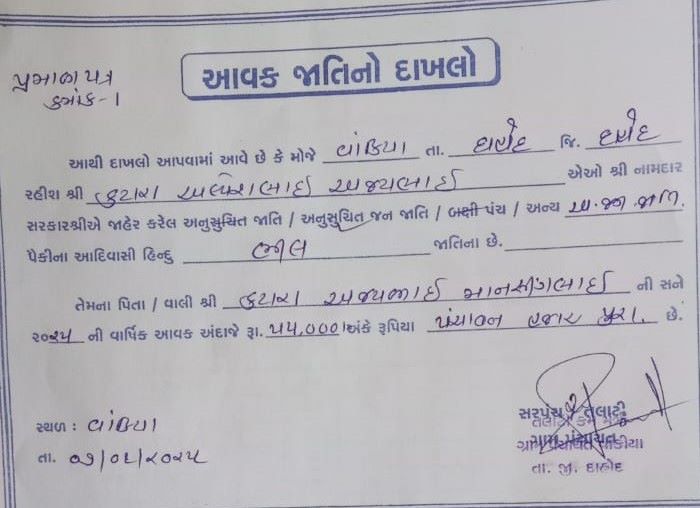 પ્રમાણપત્ર
ક્રમાંક-1
આવક જાતિનો દાખલો
આથી દાખલો આપવામાં આવે છે કે મોજે વાંકિયા તા. દાહોદ જિ. દાહોદ
રહીશ શ્રી કટારા અલ્પેશભાઈ અજયભાઈ એઓ શ્રી નામદાર
સરકારશ્રીએ જાહેર કરેલ અનુસુચિત જાતિ / અનુસુચિત જન જાતિ / બક્ષી પંચ / અન્ય અ.જ. જાતિ.
પૈકીના આદિવાસી હિન્દુ ભીલ જાતિના છે.
તેમના પિતા / વાલી શ્રી કટારા અજયભાઈ માનસીંગભાઈ ની સને
૨૦૨૫ ની વાર્ષિક આવક અંદાજે રૂા. ૫૫,૦૦૦/ અંકે રૂપિયા પંચાવન હજાર પુરા. છે.
સ્થળ : વાંકિયા
તા. /૨૦૨૫
સરપંચ / તલાટી
તલાટી કમ મંત્રી
ગ્રામ પંચાયત
ગ્રામ પંચાયત વાંકીયા
તા. જી. દાહોદ